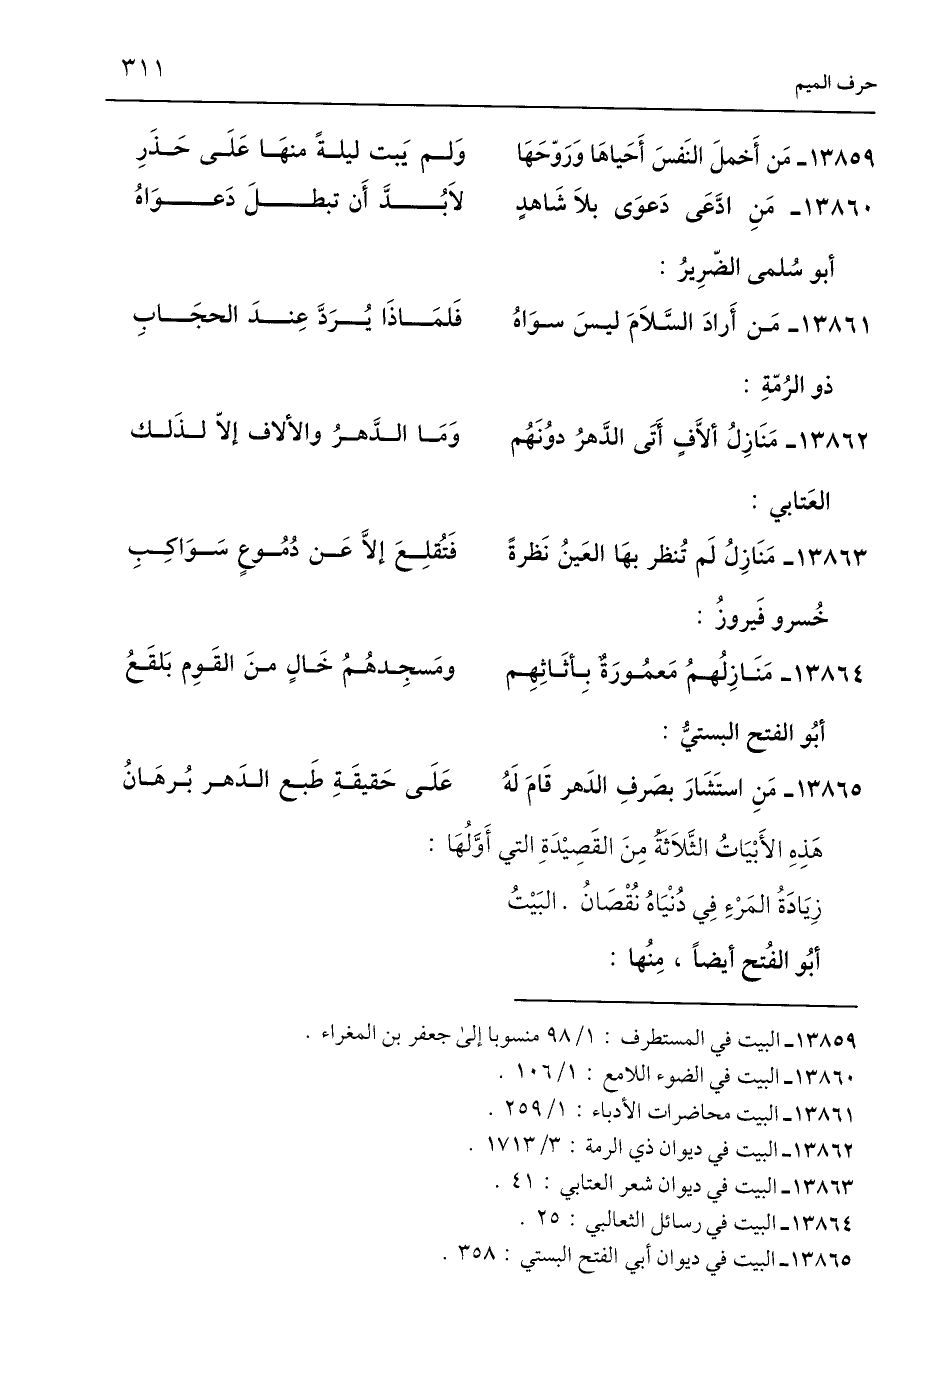 حرف الميم ٣١١
١٣٨٥٩ـ مَن أَخملَ النَفسَ أَحياهَا وَرَوّحَهَا وَلـم يَبت ليلةً منهَـا عَلَـى حَـذَرِ
١٣٨٦٠ـ مَنِ ادَّعَى دَعوَى بلاَ شَاهدٍ لاَبُـدَّ أَن تبطـلَ دَعـوَاهُ
أبو سُلمى الضّرِيرُ :
١٣٨٦١ـ مَـن أَرادَ السَّلاَمَ ليـسَ سـوَاهُ فَلمَـاذَا يُـرَدَّ عِنـدَ الحجَـابِ
ذو الرُمّةِ :
١٣٨٦٢ـ مَنَازِلُ ألاَّفٍ أَتَى الدَّهرُ دوُنَهُم وَمَـا الـدَّهـرُ والألاف إلاّ لـذَلـك
العَتابي :
١٣٨٦٣ـ مَنَازِلُ لَم تُنظر بهَا العَينُ نَظرةً فَتُقلِـعَ إلاَّ عَـن دُمُـوعٍ سَـوَاكـبِ
خُسرو فَيروزُ :
١٣٨٦٤ـ مَنَـازِلُهـمُ مَعمُـورَةٌ بـأثَـاثِهِـم ومَسجِـدهُـمُ خَـالٍ مـنَ القَـومِ بَلقَـعُ
أبُو الفتح البستيُّ :
١٣٨٦٥ـ مَنِ استَشَارَ بصَرفِ الدَهر قَامَ لَهُ عَلَـى حَقيقَـةِ طَبـع الـدَهـر بُـرهَـانُ
هَذِهِ الأَبْيَاتُ الثَّلاَثَةُ مِنَ القَصِيْدَةِ التي أَوَّلُهَا :
زِيَادَةُ المَرْءِ فِي دُنْيَاهُ نُقْصَانُ . البَيْتُ
أبُو الفُتح أيضاً ، مِنُها :
١٣٨٥٩ـ البيت في المستطرف : ١/ ٩٨ منسوبا إلىٰ جعفر بن المغراء .
١٣٨٦٠ـ البيت في الضوء اللامع : ١/ ١٠٦ .
١٣٨٦١ـ البيت محاضرات الأدباء : ١/ ٢٥٩ .
١٣٨٦٢ـ البيت في ديوان ذي الرمة : ٣/ ١٧١٣ .
١٣٨٦٣ـ البيت في ديوان شعر العتابي : ٤١ .
١٣٨٦٤ـ البيت في رسائل الثعالبي : ٢٥ .
١٣٨٦٥ـ البيت في ديوان أبي الفتح البستي : ٣٥٨ .